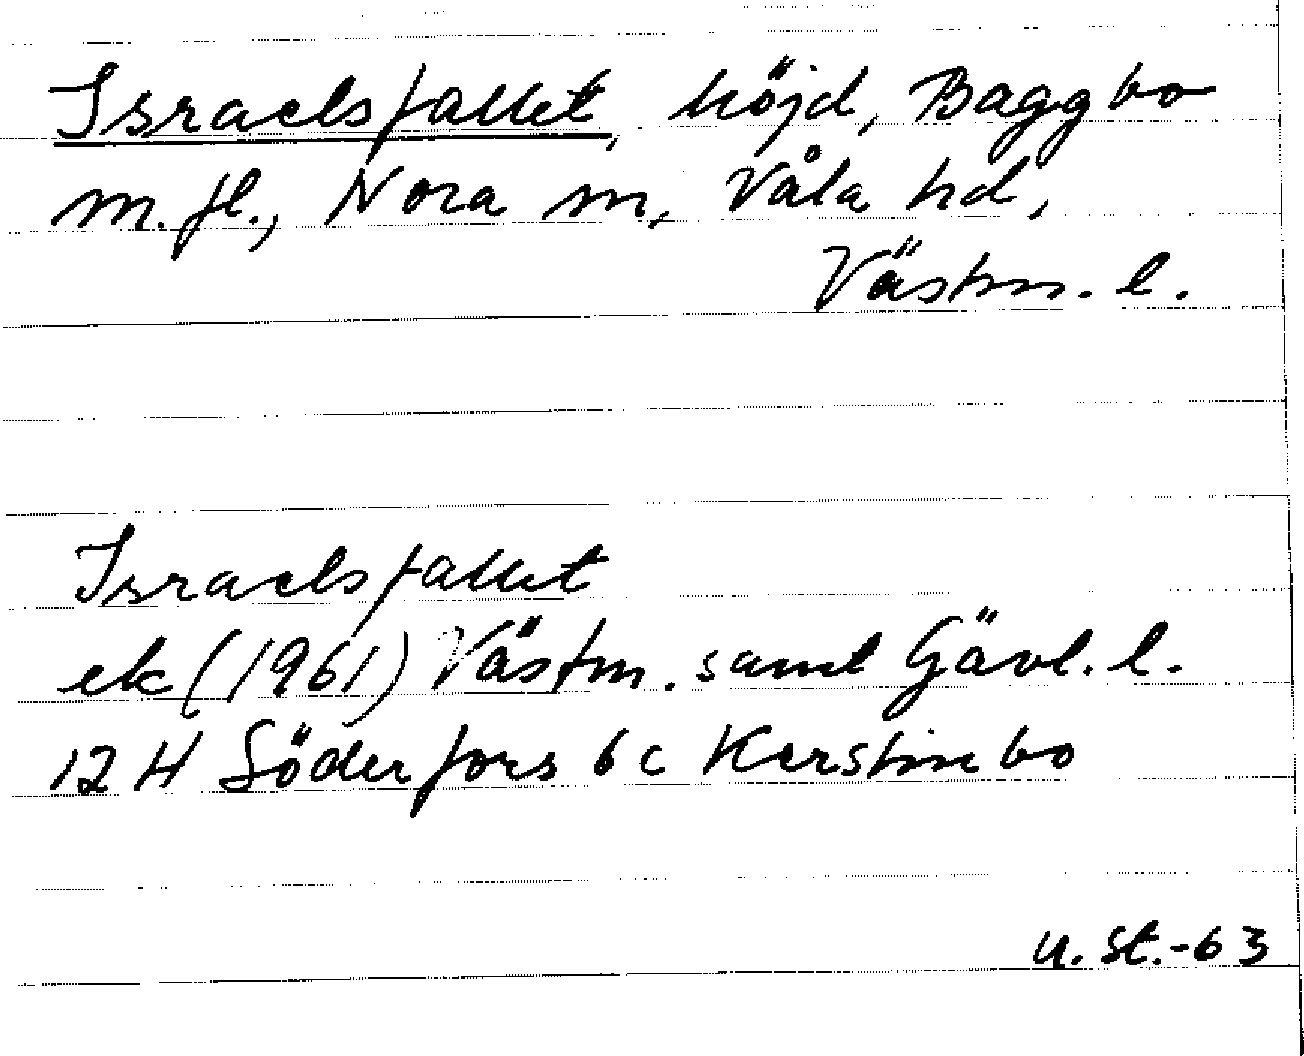 Israelsfallet, höjd, Baggbo
m. fl., Nora sn, Våla hd,
Västm. l.
Israelsfallet
ek (1961) Västm. samt Gävl. l.
12 H Söderfors 6 c Kerstinbo
U. St. -63